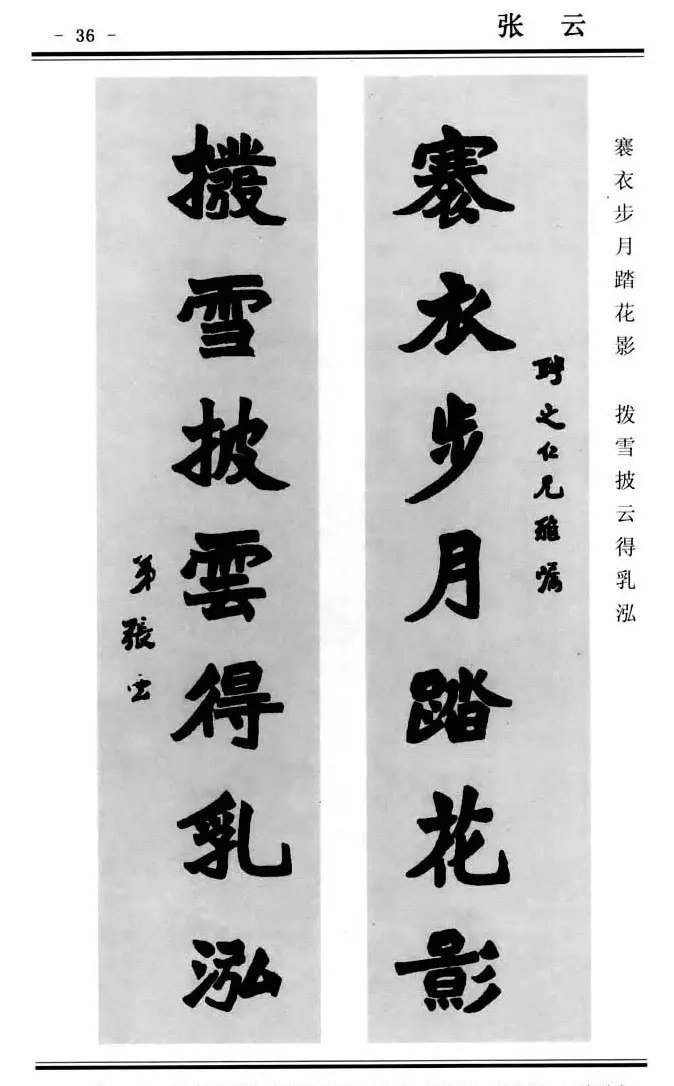 - 36 -
张 云
褰衣步月踏花影 拨雪披云得乳泓
聘之仁兄雅嘱
褰衣步月踏花影
撥雪披雲得乳泓
弟張雲